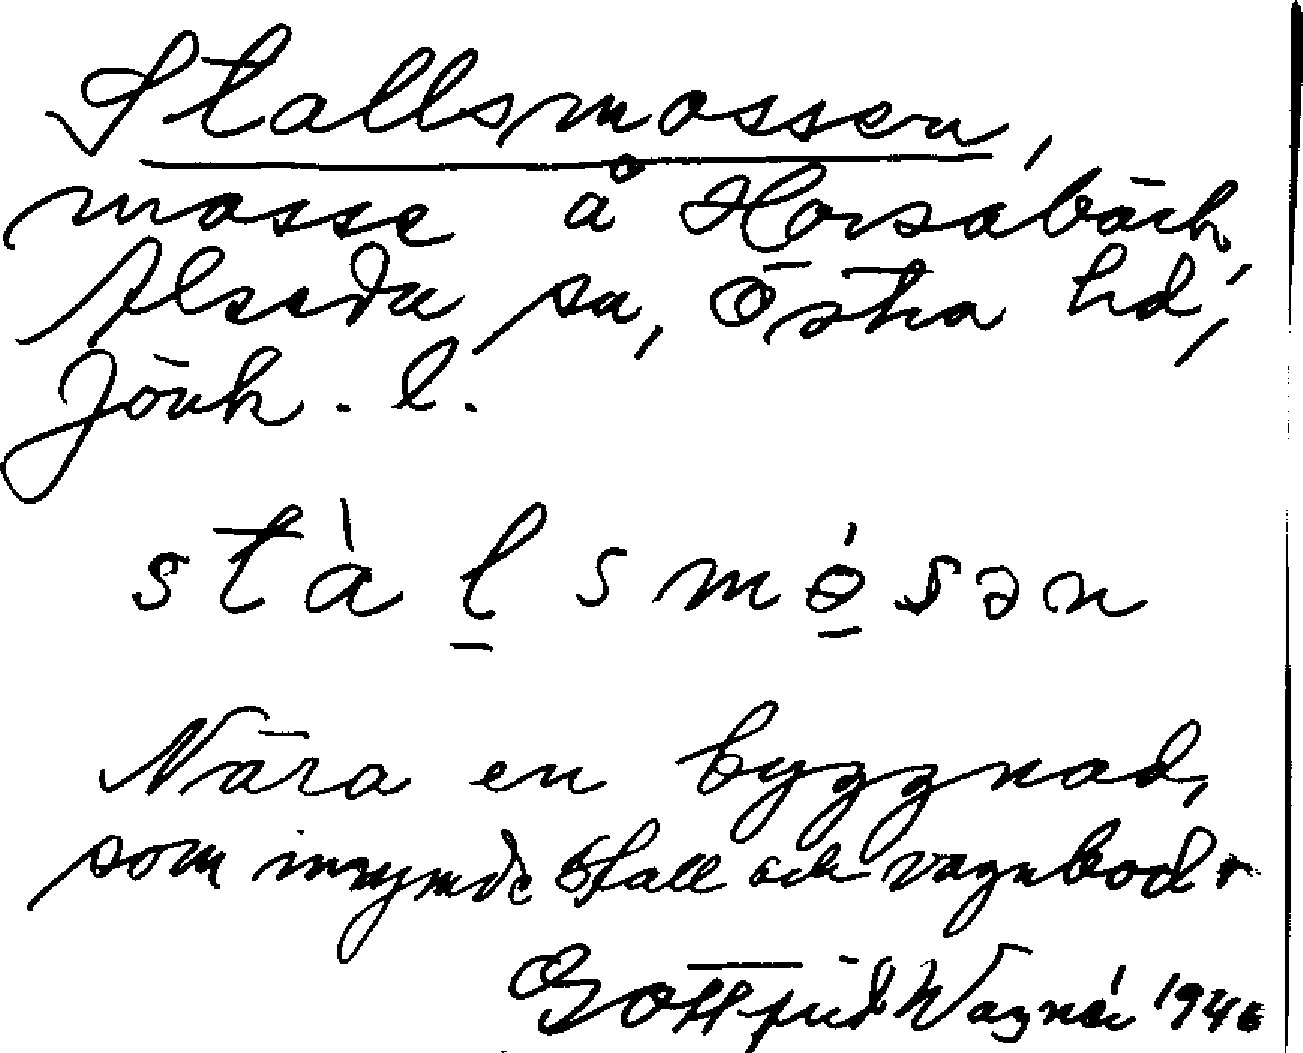 Stallsmossen,
mosse å Horsabäck,
Alseda sn, Östra hd,
Jönk. l.
stàl̠smó̠sən
Nära en byggnad,
som inrymde stall och vagnbod.
Gottfrid Wagnér 1946